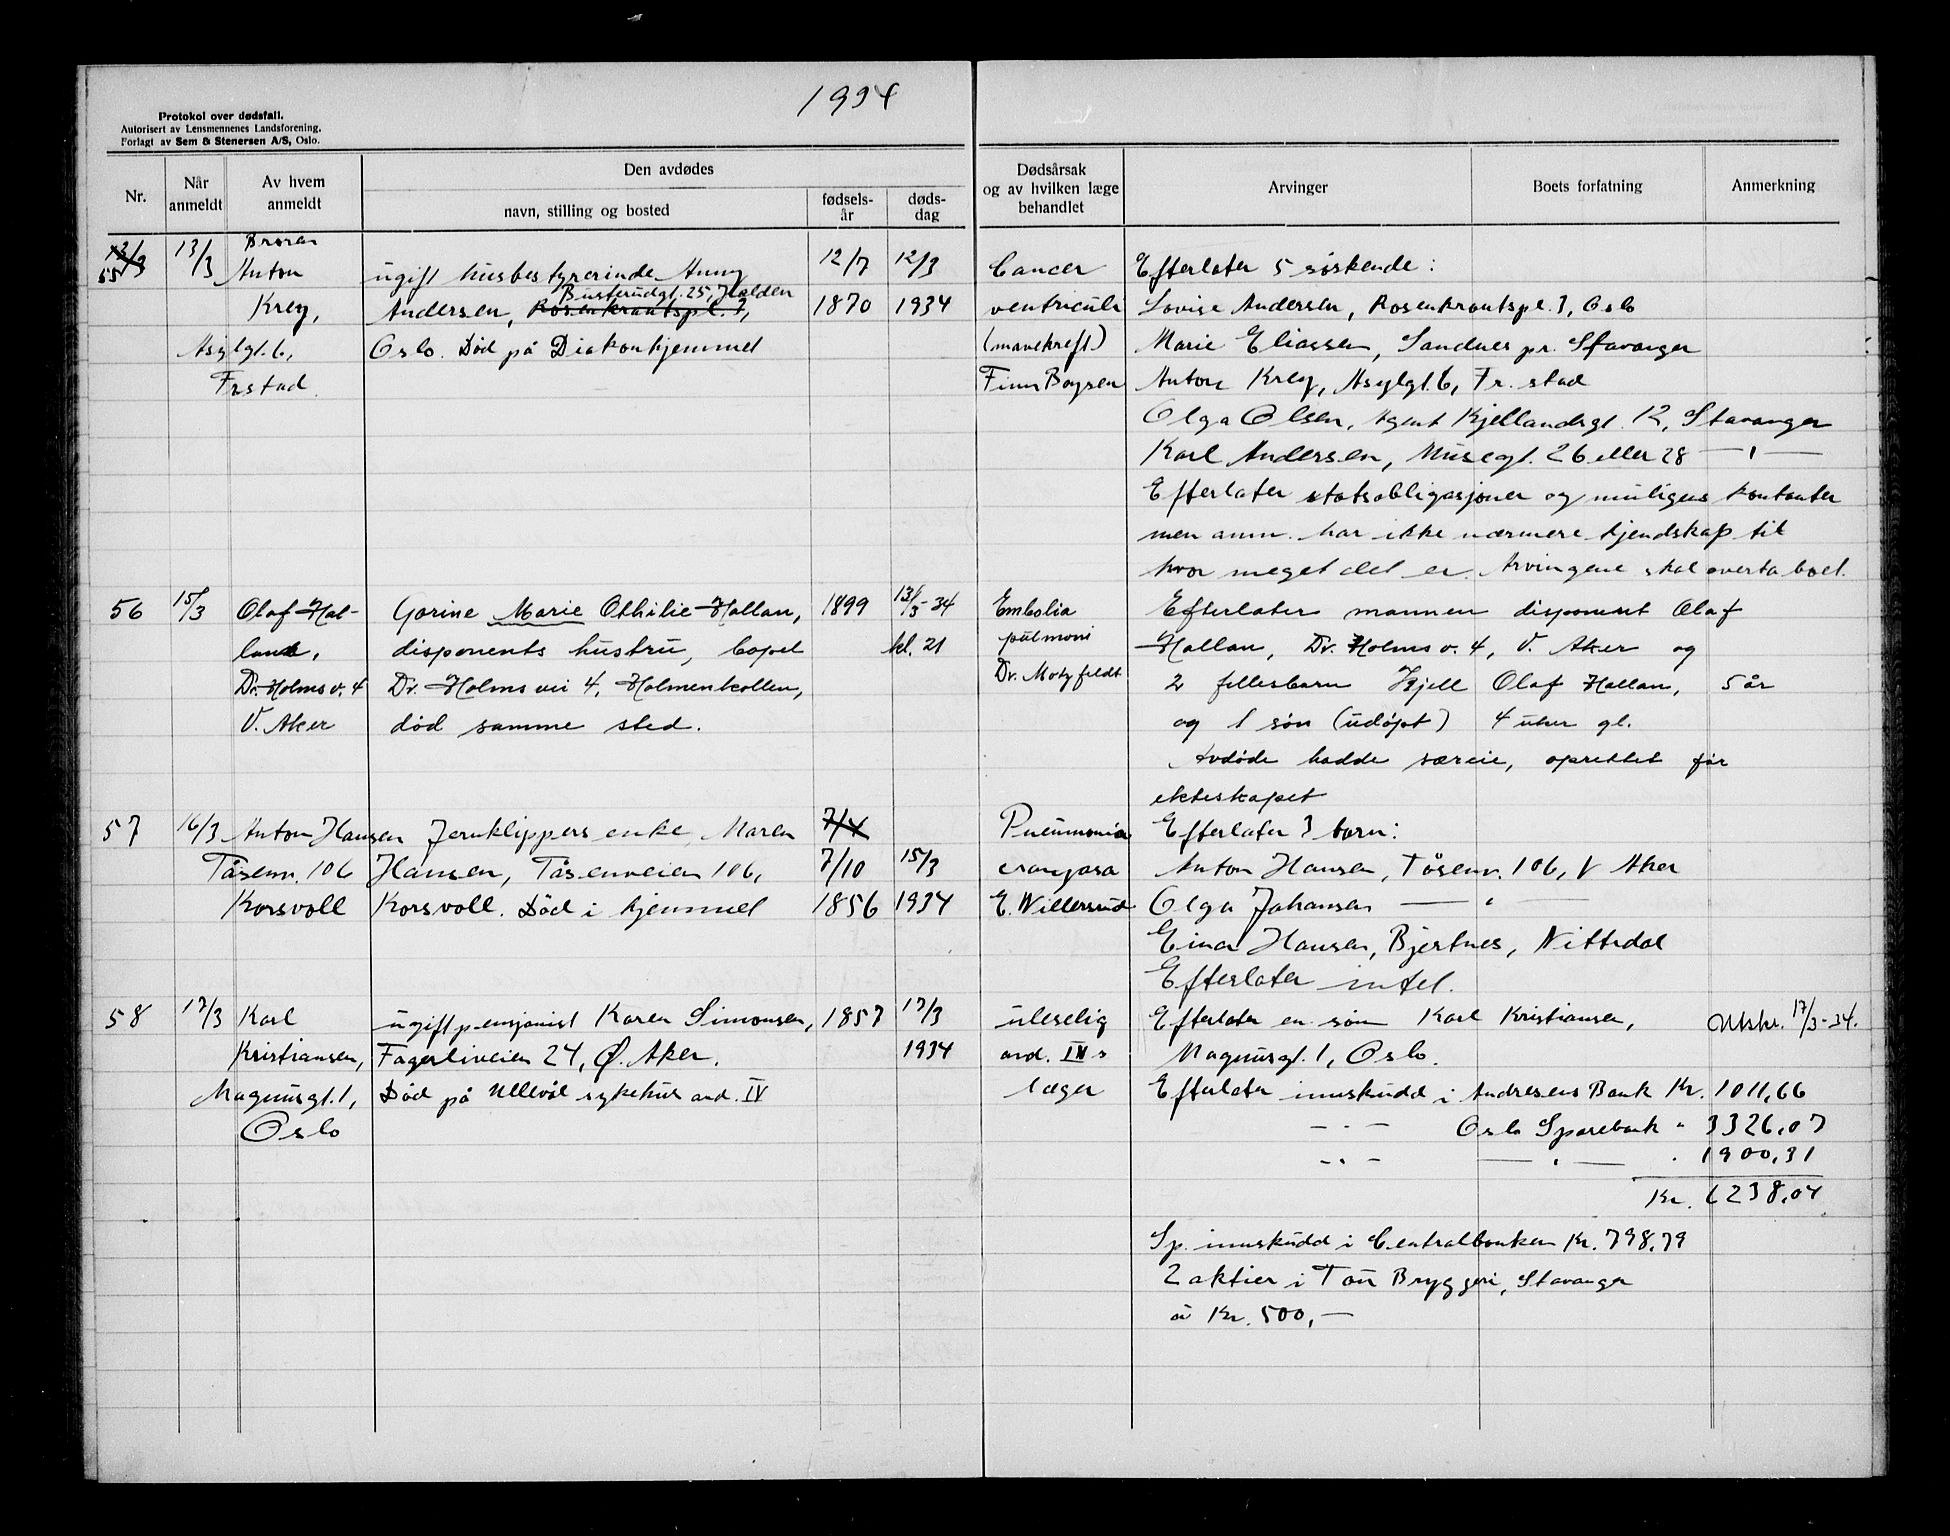 1934
Protokol over dødsfall.
Autorisert av Lensmennenes Landsforening.
Forlagt av Sem & Stenersen A/S, Oslo.
Nr.
Når anmeldt
Av hvem anmeldt
Den avdødes
navn, stilling og bosted
fødsels-år
døds-dag
Dødsårsak og av hvilken læge behandlet
Arvinger
Boets forfatning
Anmerkning
12/3
55
13/3
Broren
Anton
Krey,
Asylgt. 6,
Frstad.
ugift husbestyrerinde Anny
Busterudgt. 25, Halden
Andersen, Rosenkrantspl. 7,
Oslo. Død på Diakonhjemmet
12/7
1870
12/3
1934
Cancer
ventriculi
(mavekreft)
Finn Boysen
Efterlater 5 søskende:
Lovise Andersen, Rosenkrantspl. 7, Oslo
Marie Eliassen, Sandnes pr. Stavanger
Anton Krey, Asylgt. 6, Fr. stad
Olga Olsen, Agent Kjellandsgt. 12, Stavanger
Karl Andersen, Musegt. 26 eller 28 — " —
Efterlater statsobligasjoner og muligens kontanter
men anm. har ikke nærmere kjendskap til
hvor meget det er. Arvingene skal overta boet.
56
15/3
Olaf Hal-
lan,
Dr. Holms v. 4
V. Aker
Gorine Marie Othilie Hallan,
disponents hustru, bopel
Dr. Holms vei 4, Holmenkollen,
død samme sted.
1899
13/3-34
kl. 21
Embolia
pulmoni
Dr. Motzfeldt
Efterlater mannen disponent Olaf
Hallan, Dr. Holms v. 4, V. Aker og
2 fellesbarn Kjell Olaf Hallan, 5 år
og 1 søn (udøpt) 4 uker gl.
Avdøde hadde særeie, oprettet før
ekteskapet
57
16/3
Anton Hansen
Tåsenv. 106
Korsvoll
Jernklippers enke, Maren
Hansen, Tåsenveien 106,
Korsvoll. Død i hjemmet
7/4
7/10
1856
15/3
1934
Pneumonia
crouposa
E. Willersrud
Efterlater 3 barn:
Anton Hansen, Tåsenv. 106, V Aker
Olga Johansen — " —
Einar Hansen, Bjertnes, Nittedal
Efterlater intet.
58
17/3
Karl
Kristiansen,
Magnusgt. 1,
Oslo
ugift pensjonist Karen Simonsen,
Fagerliveien 24, Ø. Aker.
Død på Ullevål sykehus avd. IV
1857
17/3
1934
uleselig
avd. IVs
læger
Efterlater en søn Karl Kristiansen,
Magnusgt. 1, Oslo.
Utskr. 17/3-34.
Efterlater innskudd i Andresens Bank Kr. 1011,66
— " — Oslo Sparebank " 3326,07
— " — — " — " 1900,31
Kr. 6238,04
Sp. innskudd i Centralbanken Kr. 798,79
2 aktier i Tou Bryggeri, Stavanger
à Kr. 500,—